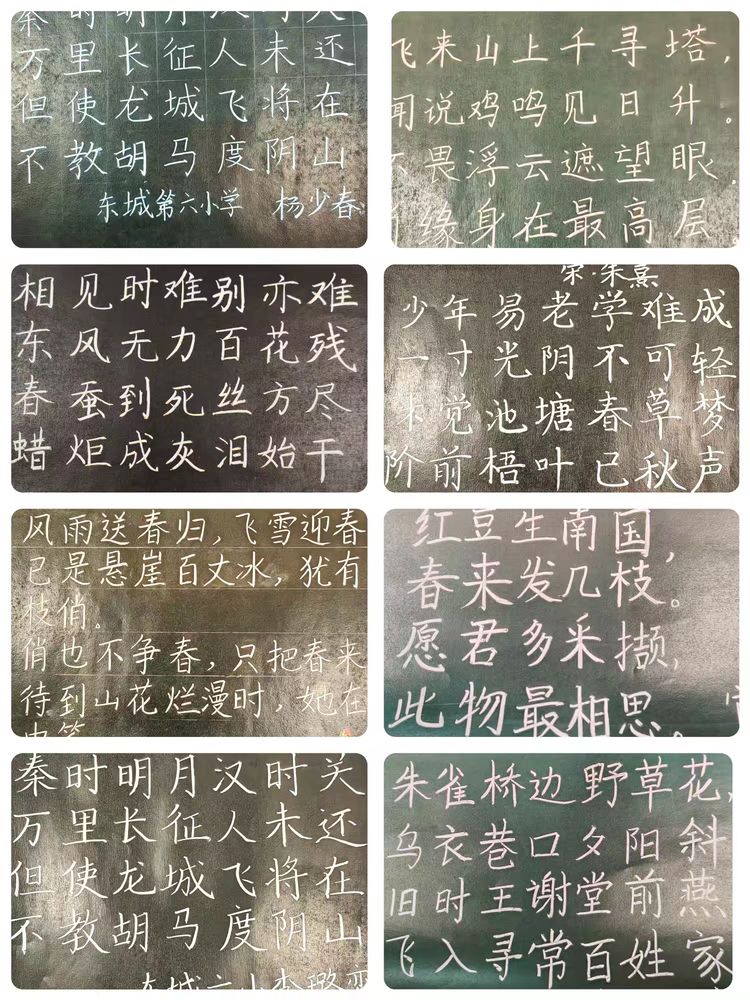 秦时明月汉时关
万里长征人未还
但使龙城飞将在
不教胡马度阴山
东城第六小学 杨少春
飞来山上千寻塔，
闻说鸡鸣见日升。
不畏浮云遮望眼，
缘身在最高层。
相见时难别亦难
东风无力百花残
春蚕到死丝方尽
蜡炬成灰泪始干
宋·朱熹
少年易老学难成
一寸光阴不可轻
未觉池塘春草梦
阶前梧叶已秋声
风雨送春归，飞雪迎春
已是悬崖百丈冰，犹有
枝俏。
俏也不争春，只把春来
待到山花烂漫时，她在
中笑
红豆生南国，
春来发几枝。
愿君多采撷，
此物最相思。
秦时明月汉时关
万里长征人未还
但使龙城飞将在
不教胡马度阴山
东城六小李璐
朱雀桥边野草花，
乌衣巷口夕阳斜
旧时王谢堂前燕
飞入寻常百姓家